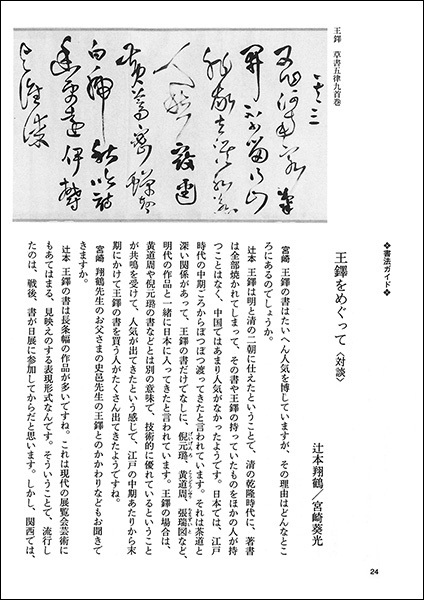 王鐸 草書五律九首巻
❖書法ガイド❖
王鐸をめぐって〈対談〉
辻本翔鶴/宮崎葵光
宮崎 王鐸の書はたいへん人気を博していますが、その理由はどんなとこ
ろにあるのでしょうか。
辻本 王鐸は明と清の二朝に仕えたということで、清の乾隆時代に、著書
は全部焼かれてしまって、その書や王鐸の持っていたものをほかの人が持
つことはなく、中国ではあまり人気がなかったようです。日本では、江戸
時代の中期ごろからぼつぼつ渡ってきたと言われています。それは茶道と
深い関係があって、王鐸の書だけでなしに、倪元璐、黄道周、張瑞図など、
明代の作品と一緒に日本に入ってきたと言われています。王鐸の場合は、
黄道周や倪元璐の書などとは別の意味で、技術的に優れているということ
が共鳴を受けて、人気が出てきたという感じで、江戸の中期あたりから末
期にかけて王鐸の書を買う人がたくさん出てきたようですね。
宮崎 翔鶴先生のお父さまの史邑先生の王鐸とのかかわりなどもお聞きで
きますか。
辻本 王鐸の書は長条幅の作品が多いですね。これは現代の展覧会芸術に
もあてはまる、見映えのする表現形式なんです。そういうことで、流行し
たのは、戦後、書が日展に参加してからだと思います。しかし、関西では、
24